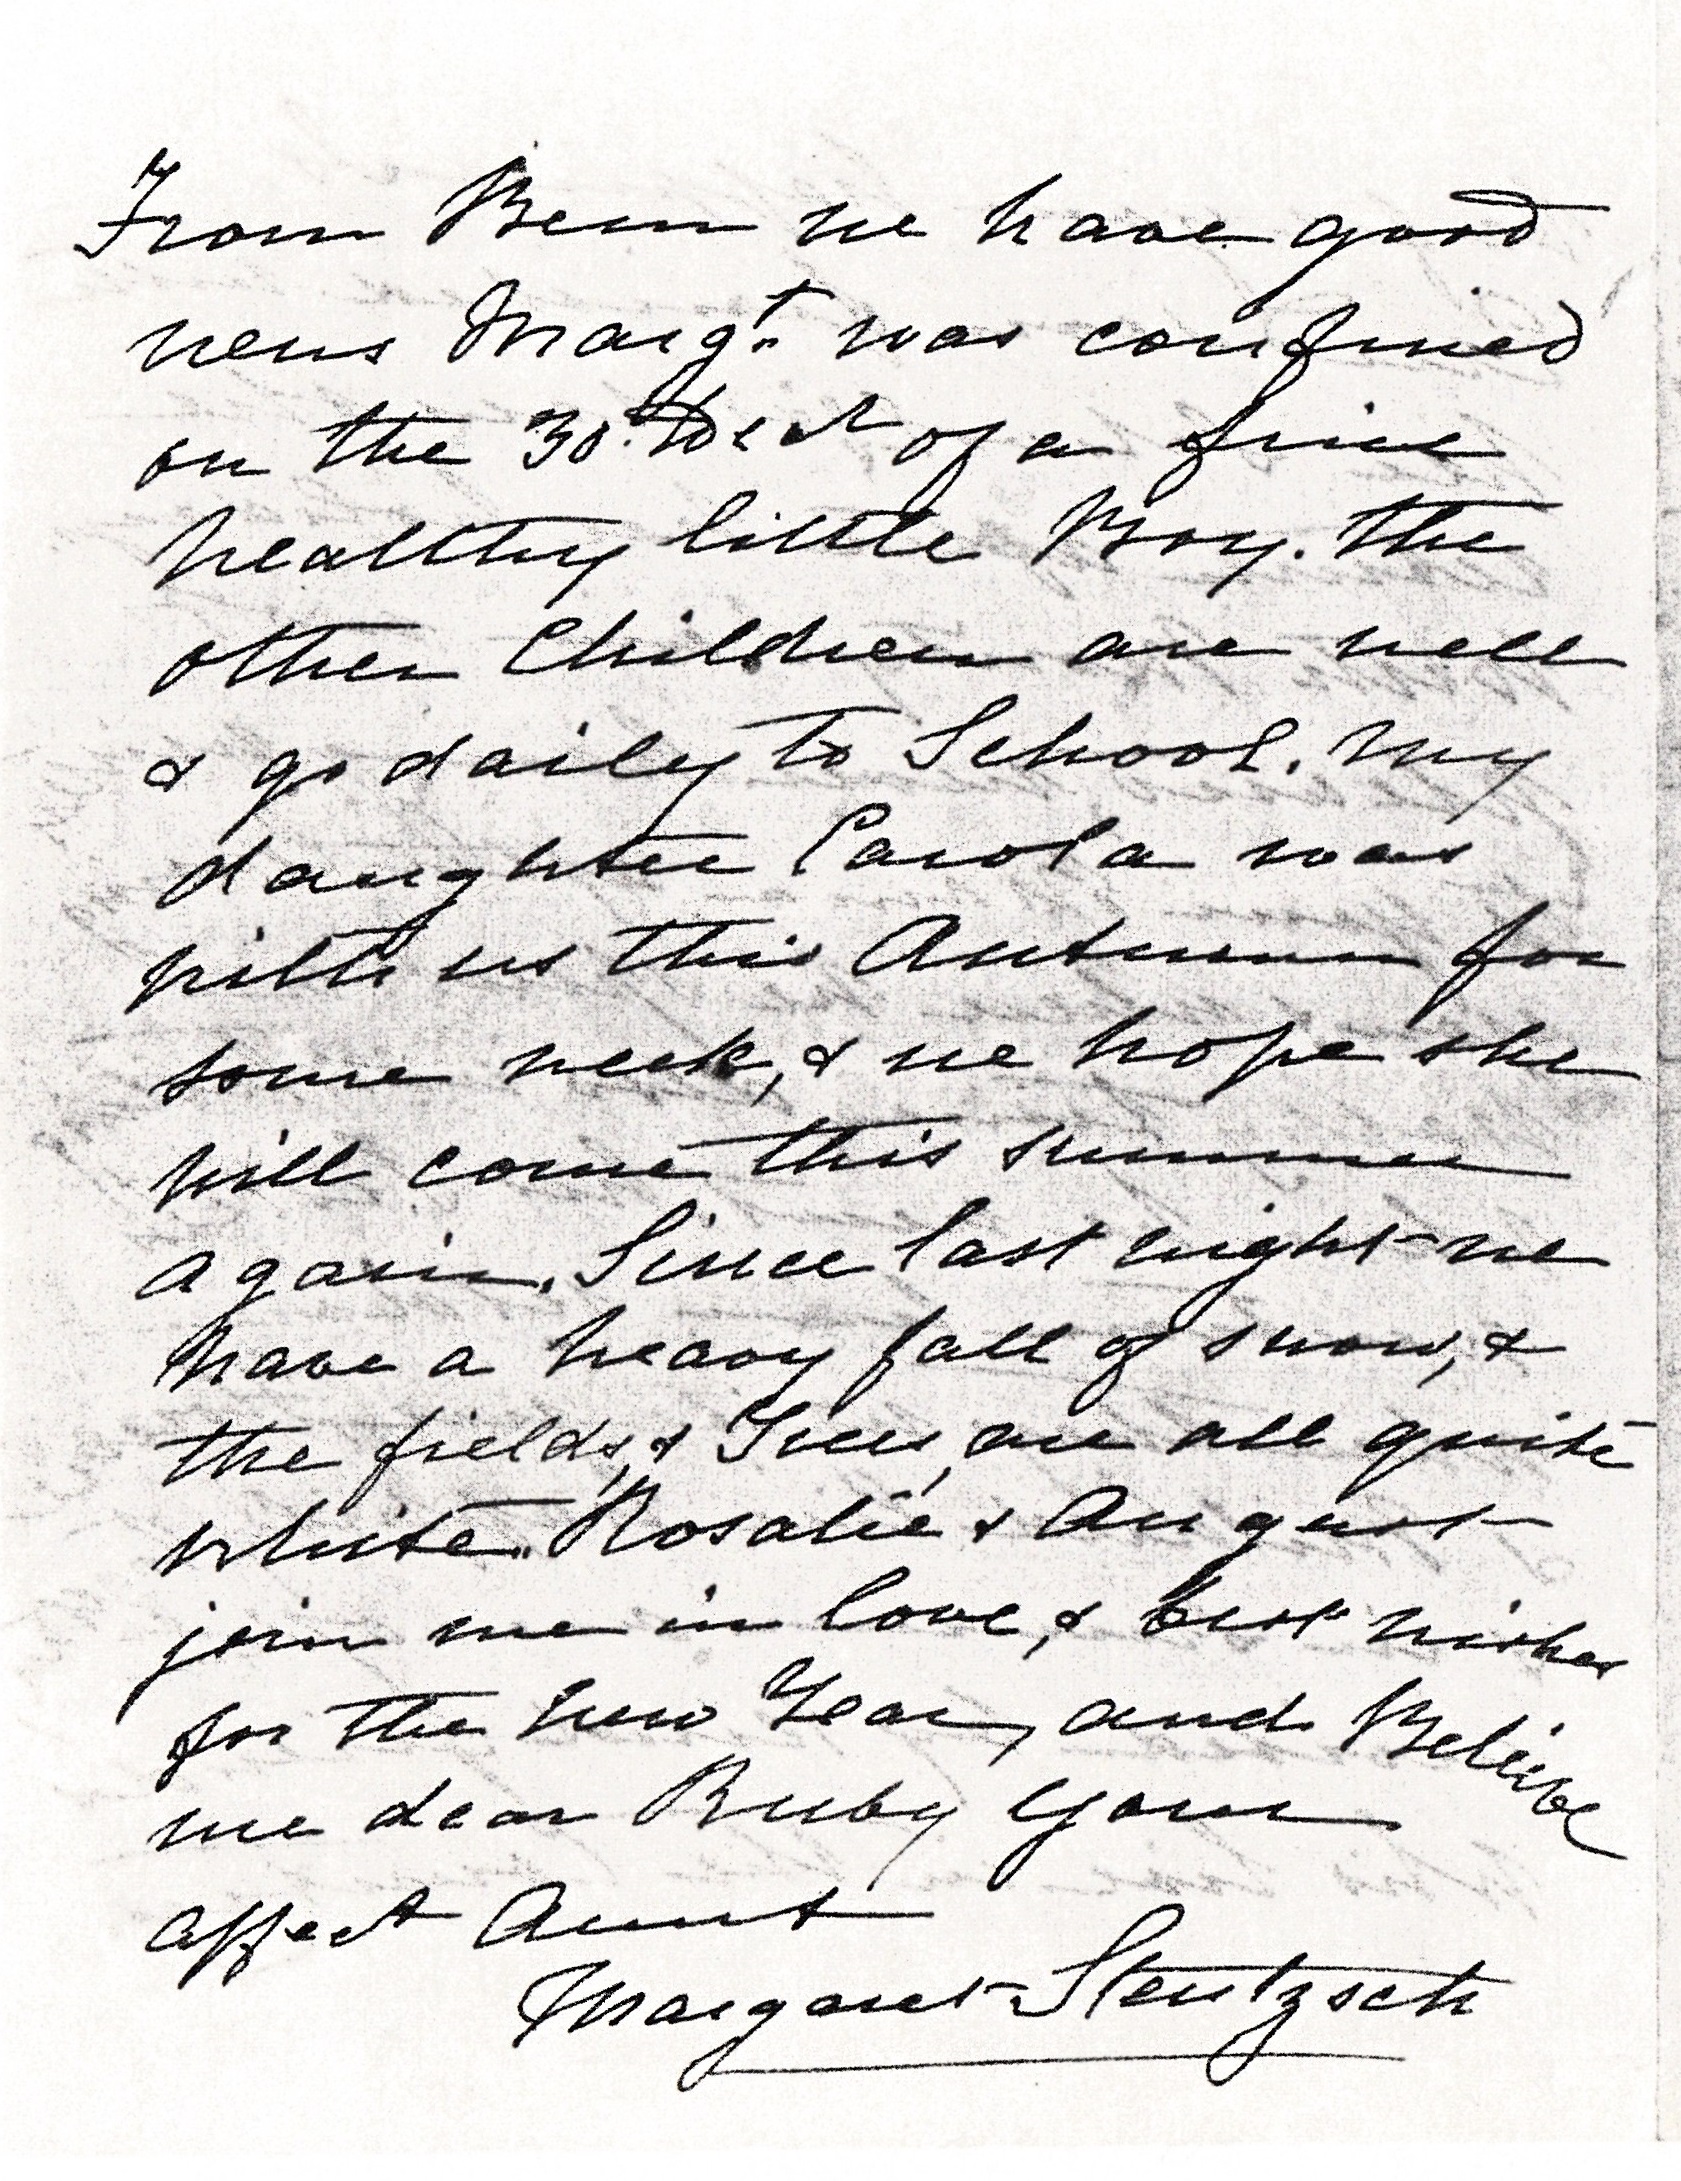 From Bern we have good
news Margt. was confined
on the 30. Dect of a fine
healthy little Boy. the
other Children are well
& go daily to School. My
daughter Carola was
with us this Autumn for
some week, & we hope she
will come this summer
again. Since last night we
have a heavy fall of snow, &
the fields, & Trees, are all quite
white. Rosalie & August
join me in love, & best wishes
for the New Year, and Believe
me dear Ruby your
affect Aunt
Margaret Stentzsch